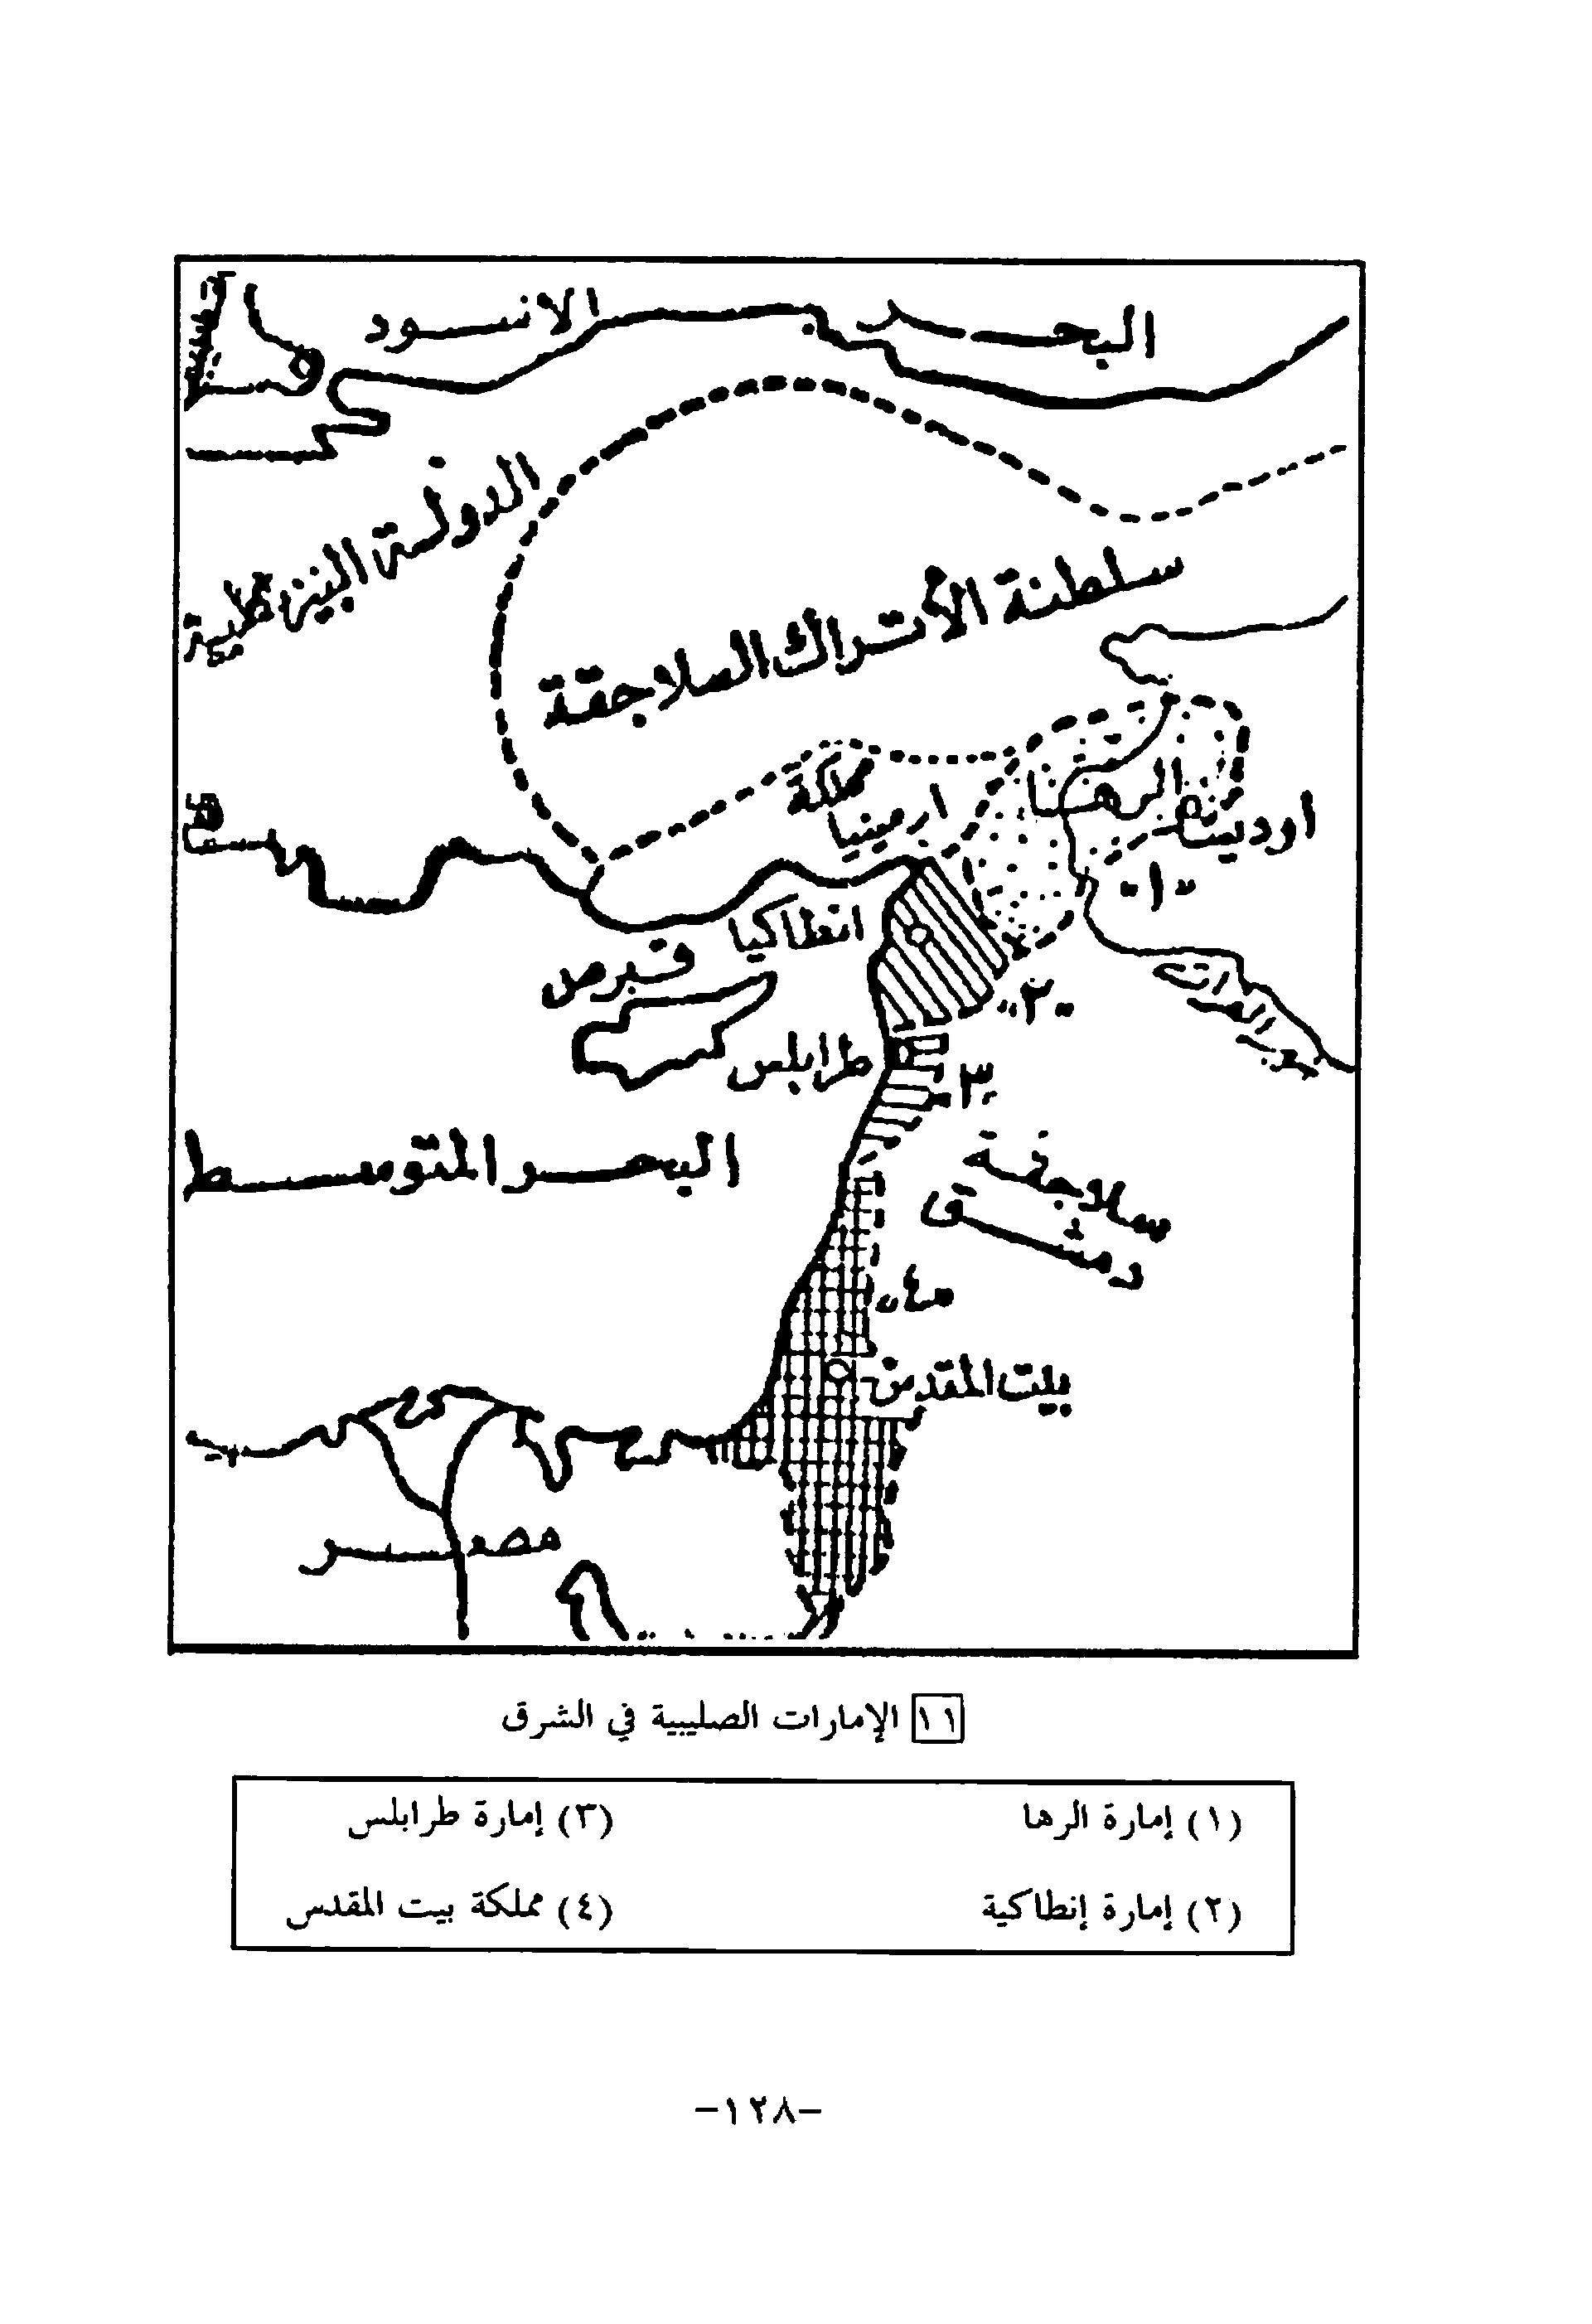 البحر الاسود
الدولة البيزنطية
سلطنة الأتراك السلاجقة
مملكة
ارمينيا
الرها
اوديسا
-١-
انطاكيا
قبرص
-٢-
الفرات
طرابلس
-٣-
البحر المتوسط
سلاجقة
دمشق
-٤-
بيت المقدس
مصر
١١ الإمارات الصليبية في الشرق
(١) إمارة الرها (٣) إمارة طرابلس
(٢) إمارة إنطاكية (٤) مملكة بيت المقدس
-١٢٨-